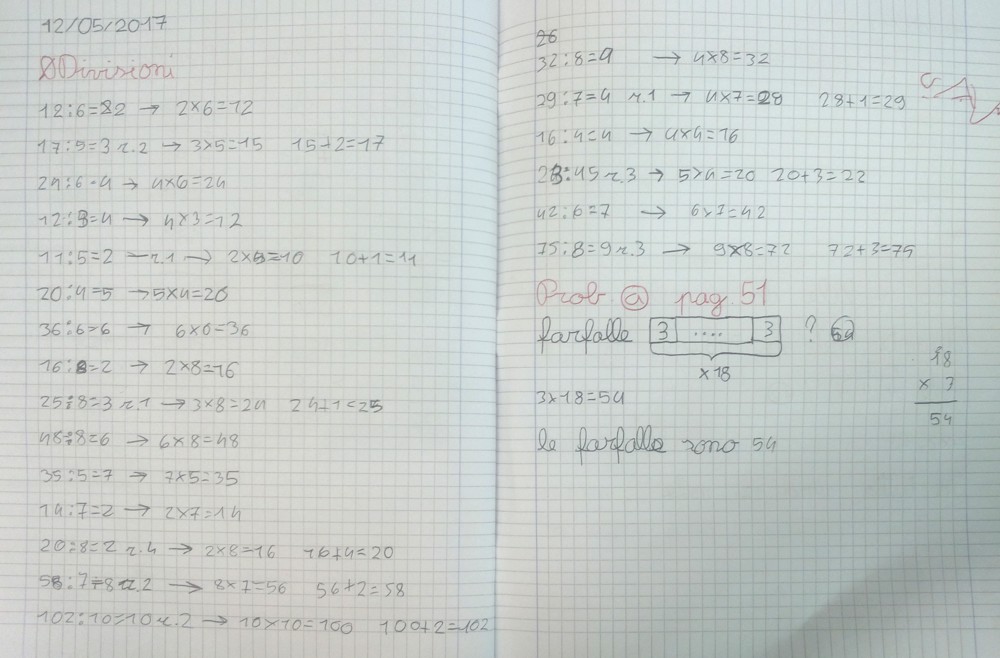 12/05/2017
Divisioni
12:6=2 → 2x6=12
17:5=3 r.2 → 3x5=15 15+2=17
24:6=4 → 4x6=24
12:3=4 → 4x3=12
11:5=2 r.1 → 2x5=10 10+1=11
20:4=5 → 5x4=20
36:6=6 → 6x6=36
16:8=2 → 2x8=16
25:8=3 r.1 → 3x8=24 24+1=25
48:8=6 → 6x8=48
35:5=7 → 7x5=35
14:7=2 → 2x7=14
20:8=2 r.4 → 2x8=16 16+4=20
58:7=8 r.2 → 8x7=56 56+2=58
102:10=10 r.2 → 10x10=100 100+2=102
26
32:8=4 → 4x8=32
29:7=4 r.1 → 4x7=28 28+1=29
16:4=4 → 4x4=16
23:45 r.3 → 5x4=20 20+3=22
42:6=7 → 6x7=42
75:8=9 r.3 → 9x8=72 72+3=75
Prob a pag. 51
farfalle 3 .... 3 ? 54
x18
18
x 3
54
3x18=54
le farfalle sono 54